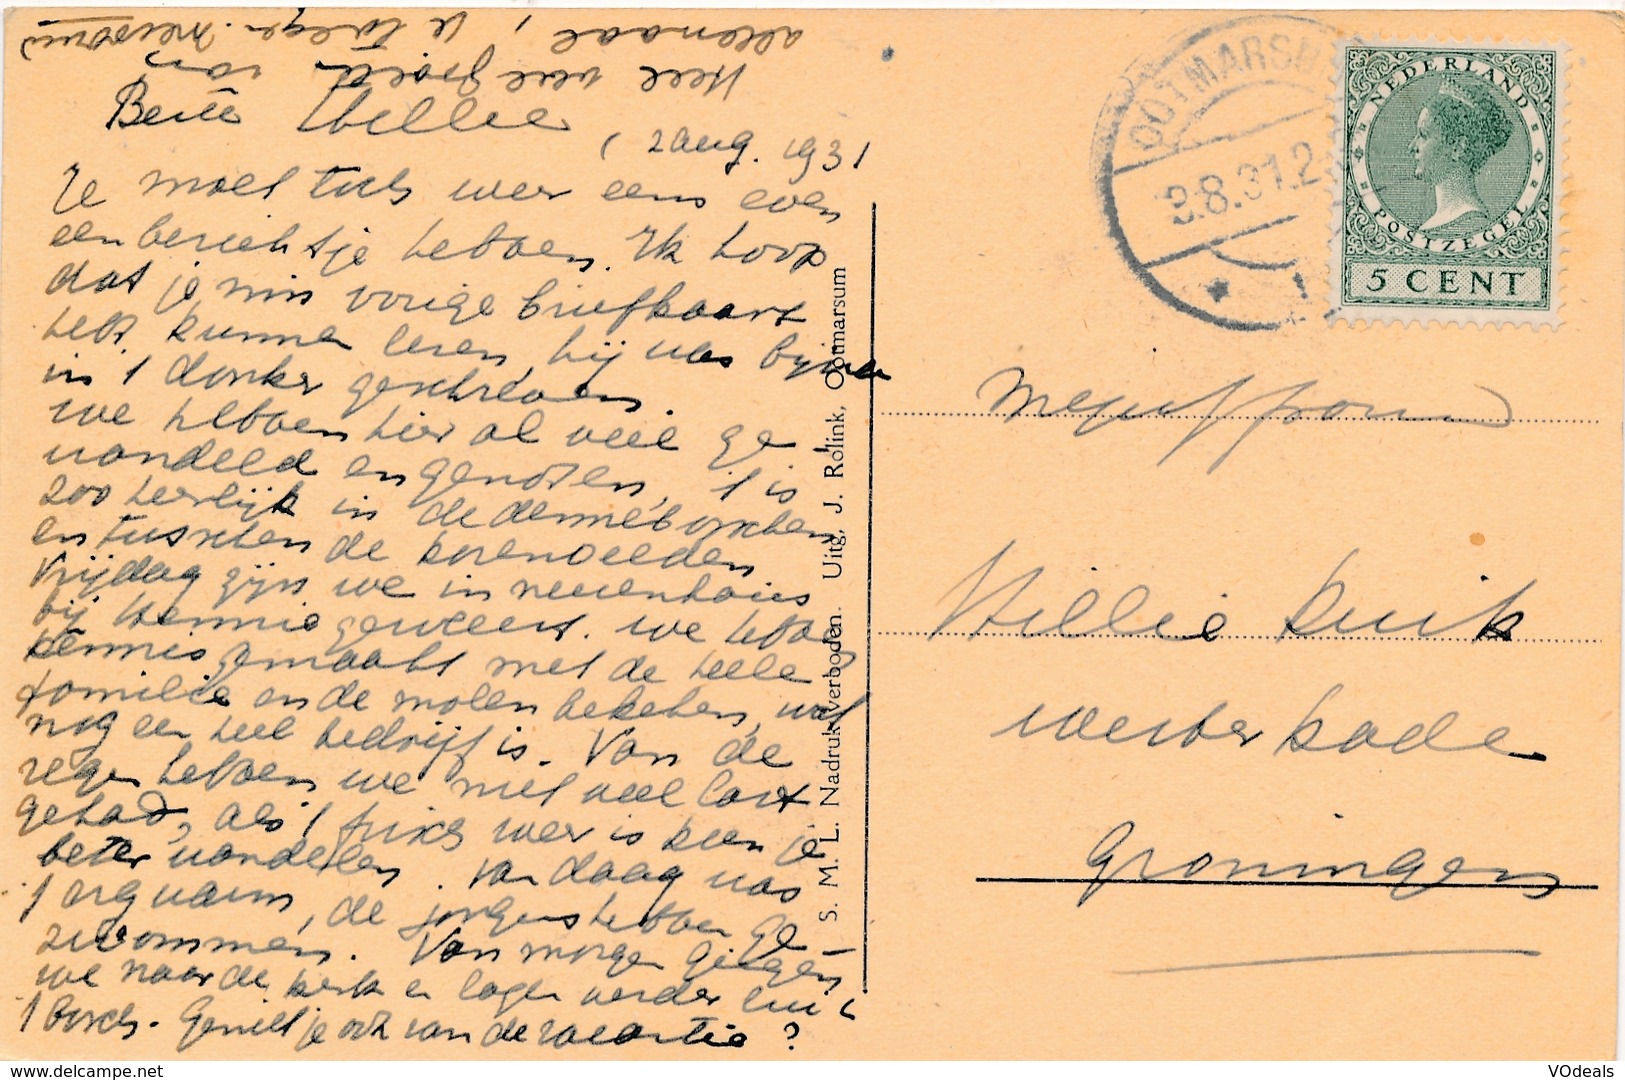 allemaal,
Heel veel groeten van
Beste Willie
( 2 aug. 1931
Je moet toch weer eens even
een berichtje hebben. Ik hoop
dat je mijn vorige briefkaart
hebt kunnen lezen, hij was bijna
in 't donker geschreven.
We hebben hier al veel ge
wandeld en genoten, 't is
zoo heerlijk in de dennebosschen
en tusschen de korenvelden
Vrijdag zijn we in nieuenhuis
bij Hennie geweest. we hebben
kennis gemaakt met de heele
familie en de molen bekeken, wat
nog een heel bedrijf is. Van de
regen hebben we niet veel last
gehad, als 't frisch weer is kun je
beter wandelen. Vandaag was
't erg warm, de jongens hebben ge
zwommen. Van morgen gingen
we naar de kerk en lagen verder lui in
't bosch. Geniet je ook van de vacantie?
S. M. L. Nadruk verboden. Uitg. J. Rolink, Ootmarsum
OOTMARSUM
3.8.31.2
NEDERLAND
POSTZEGEL
5 CENT
Mejuffrouw
Willie Kuik
Westerkade
Groningen
VOdeals